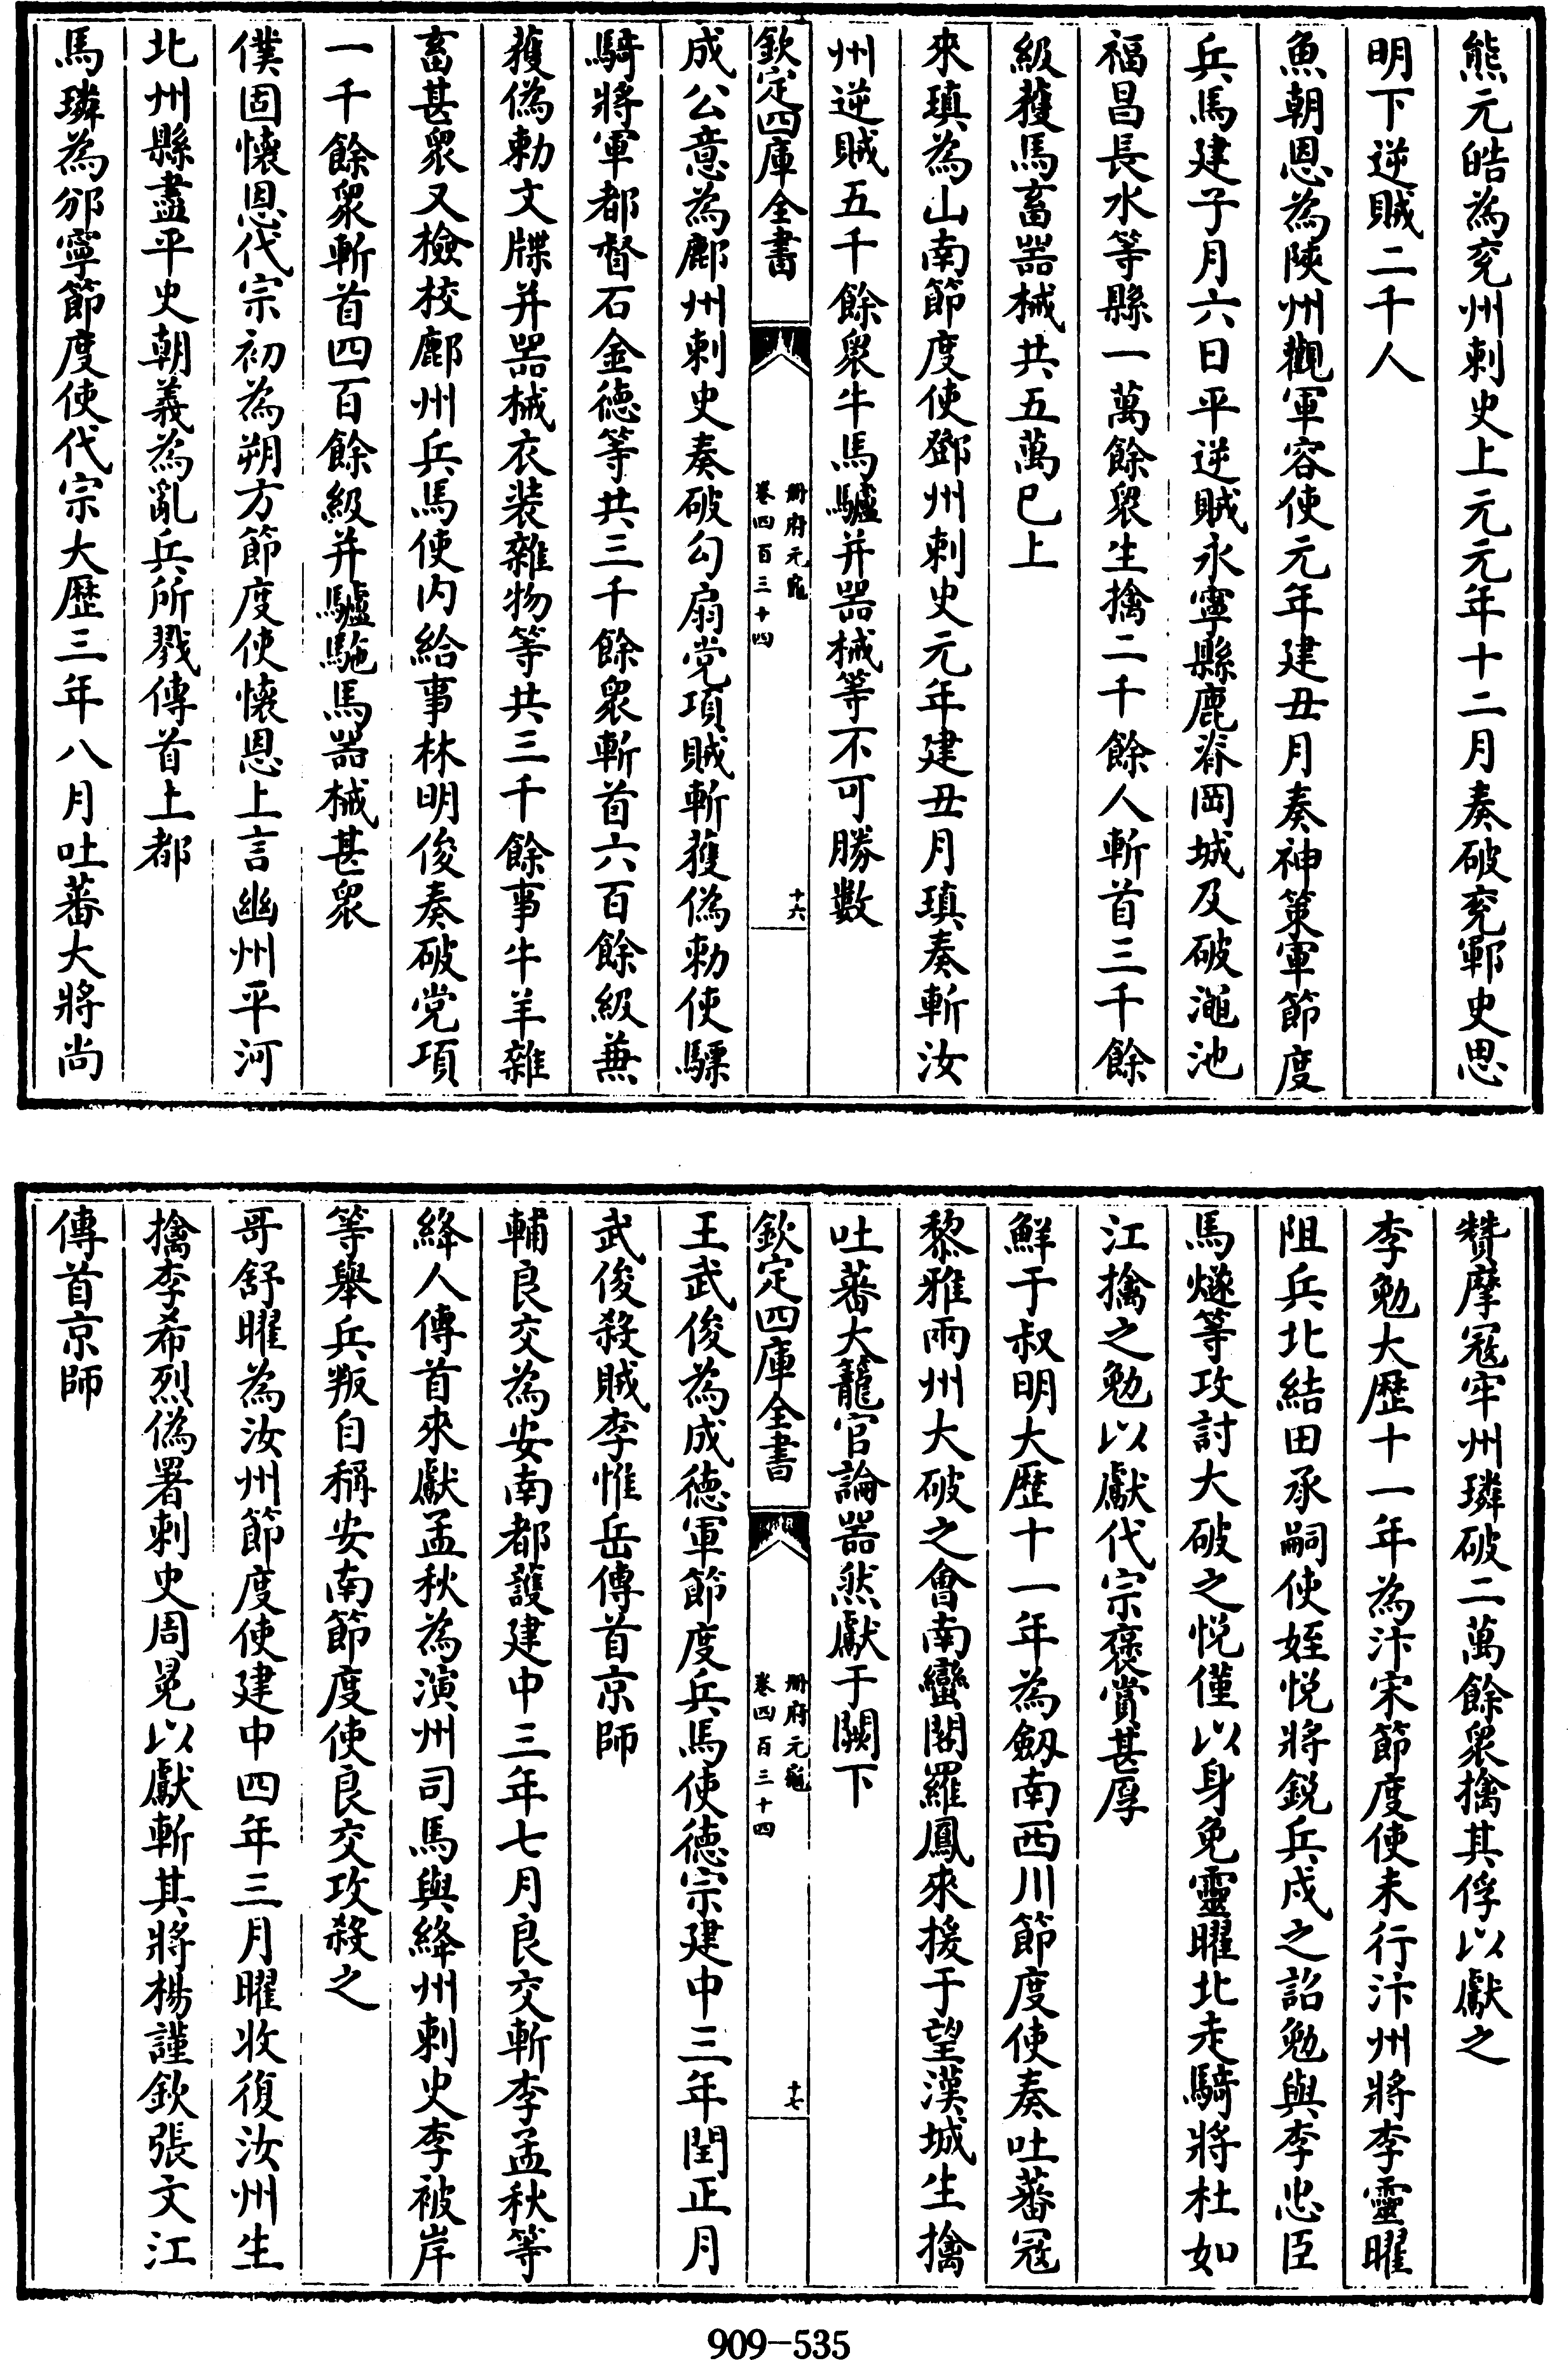 熊元皓為兖州刺史上元元年十二月奏破兖鄆史思
明下逆賊二千人
魚朝恩為陝州觀軍容使元年建丑月奏神策軍節度
兵馬建子月六日平逆賊永寧縣鹿脊岡城及破澠池
福昌長水等縣一萬餘衆生擒二千餘人斬首三千餘
級獲馬畜器械共五萬已上
來瑱為山南節度使鄧州刺史元年建丑月瑱奏斬汝
州逆賊五千餘衆牛馬驢并器械等不可勝數
欽定四庫全書
冊府元龜
卷四百三十四
十六
成公意為鄜州刺史奏破勾扇党項賊斬獲偽勅使驃
騎將軍都督石金德等共三千餘衆斬首六百餘級兼
獲偽勅文牒并器械衣裝雜物等共三千餘事牛羊雜
畜甚衆又檢校鄜州兵馬使内給事林明俊奏破党項
一千餘衆斬首四百餘級并驢駞馬器械甚衆
僕固懷恩代宗初為朔方節度使懷恩上言幽州平河
北州縣盡平史朝義為亂兵所戮傳首上都
馬璘為邠寧節度使代宗大歴三年八月吐蕃大將尚
贊摩寇牢州璘破二萬餘衆擒其俘以獻之
李勉大歴十一年為汴宋節度使未行汴州將李靈曜
阻兵北結田承嗣使姪悦將銳兵戍之詔勉與李忠臣
馬燧等攻討大破之悦僅以身免靈曜北走騎將杜如
江擒之勉以獻代宗褒賞甚厚
鮮于叔明大歴十一年為劔南西川節度使奏吐蕃寇
黎雅兩州大破之會南蠻閣羅鳳來援于望漢城生擒
吐蕃大籠官論器然獻于闕下
欽定四庫全書
冊府元龜
卷四百三十四
十七
王武俊為成德軍節度兵馬使德宗建中三年閏正月
武俊殺賊李惟岳傳首京師
輔良交為安南都護建中三年七月良交斬李孟秋等
絳人傳首來獻孟秋為演州司馬與絳州刺史李被岸
等舉兵叛自稱安南節度使良交攻殺之
哥舒曜為汝州節度使建中四年三月曜收復汝州生
擒李希烈偽署刺史周晃以獻斬其將楊謹欽張文江
傳首京師
909-535